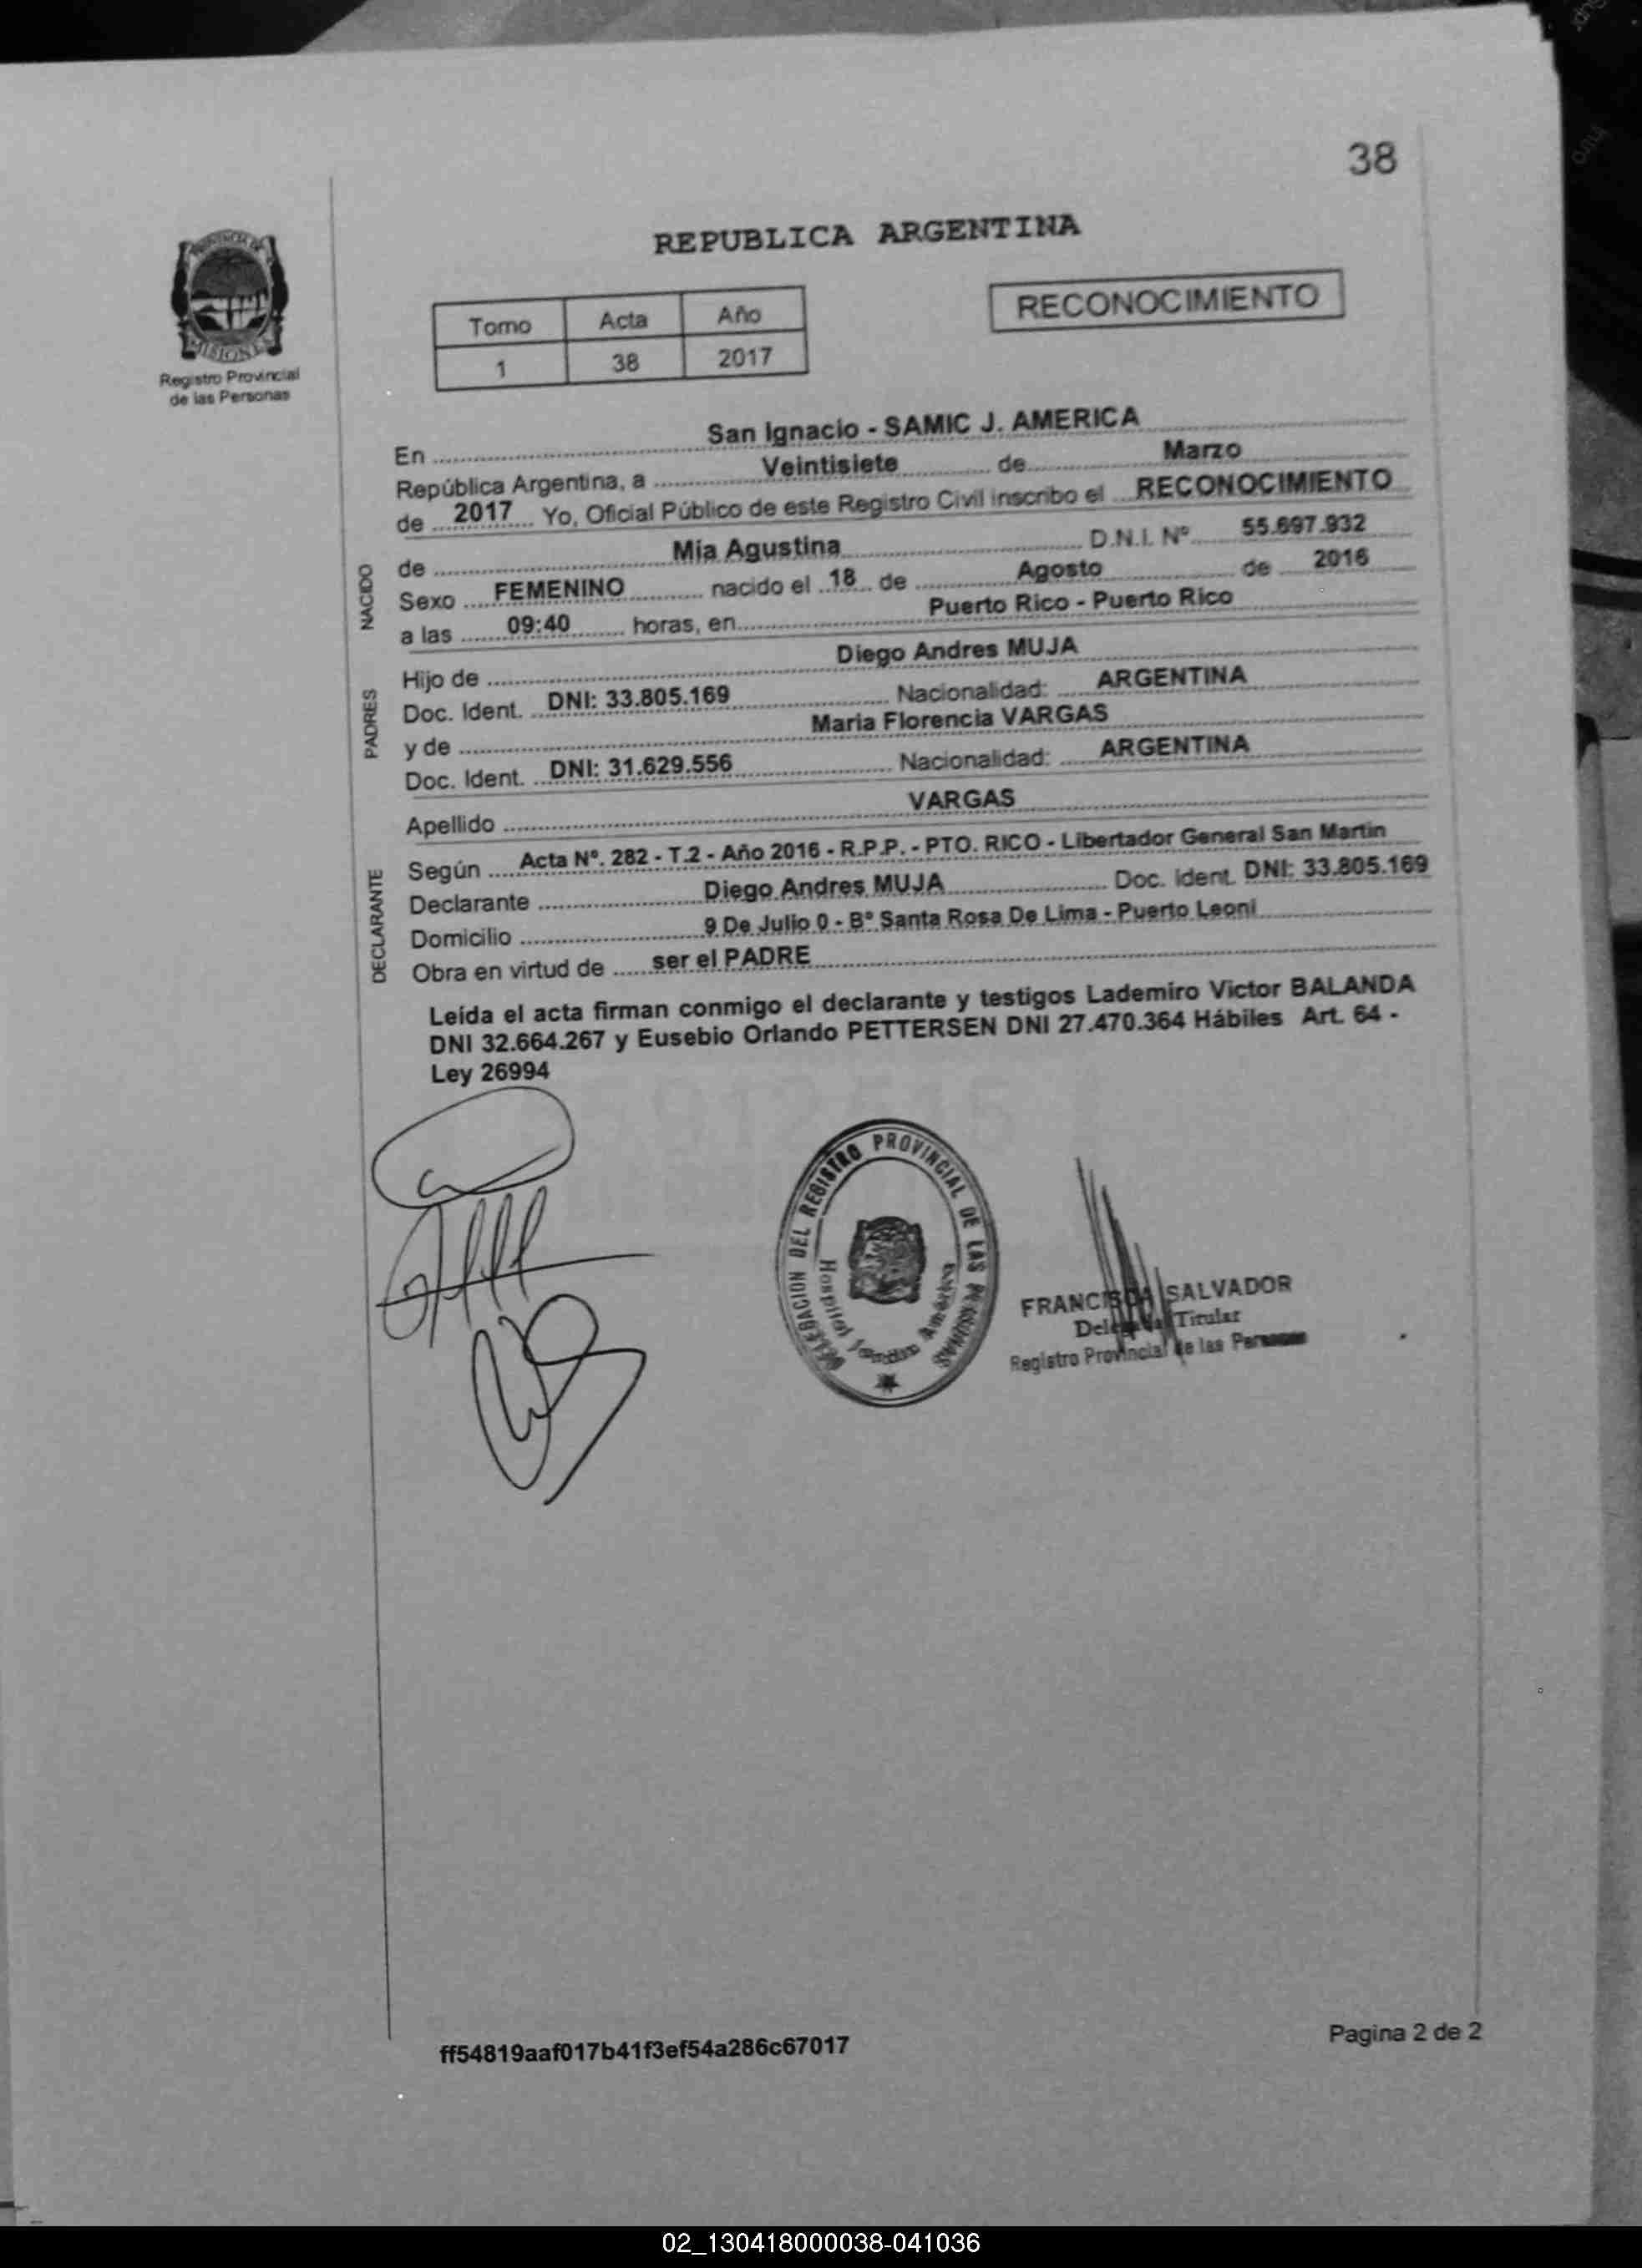 38
REPUBLICA ARGENTINA
PROVINCIA DE
MISIONES
Registro Provincial
de las Personas
Tomo Acta Año
1 38 2017
RECONOCIMIENTO
En San Ignacio - SAMIC J. AMERICA
República Argentina, a Veintisiete de Marzo
de 2017 Yo, Oficial Público de este Registro Civil inscribo el RECONOCIMIENTO
NACIDO
de Mia Agustina D.N.I. Nº 55.697.932
Sexo FEMENINO nacido el 18 de Agosto de 2016
a las 09:40 horas, en Puerto Rico - Puerto Rico
PADRES
Hijo de Diego Andres MUJA
Doc. Ident. DNI: 33.805.169 Nacionalidad: ARGENTINA
y de Maria Florencia VARGAS
Doc. Ident. DNI: 31.629.556 Nacionalidad: ARGENTINA
Apellido VARGAS
DECLARANTE
Según Acta Nº. 282 - T.2 - Año 2016 - R.P.P. - PTO. RICO - Libertador General San Martin
Declarante Diego Andres MUJA Doc. Ident. DNI: 33.805.169
Domicilio 9 De Julio 0 - Bº Santa Rosa De Lima - Puerto Leoni
Obra en virtud de ser el PADRE
Leída el acta firman conmigo el declarante y testigos Lademiro Victor BALANDA
DNI 32.664.267 y Eusebio Orlando PETTERSEN DNI 27.470.364 Hábiles Art. 64 -
Ley 26994
DELEGACION DEL REGISTRO PROVINCIAL DE LAS PERSONAS
Hospital América
FRANCISCA SALVADOR
Delegada Titular
Registro Provincial de las Personas
ff54819aaf017b41f3ef54a286c67017
Pagina 2 de 2
02_130418000038-041036